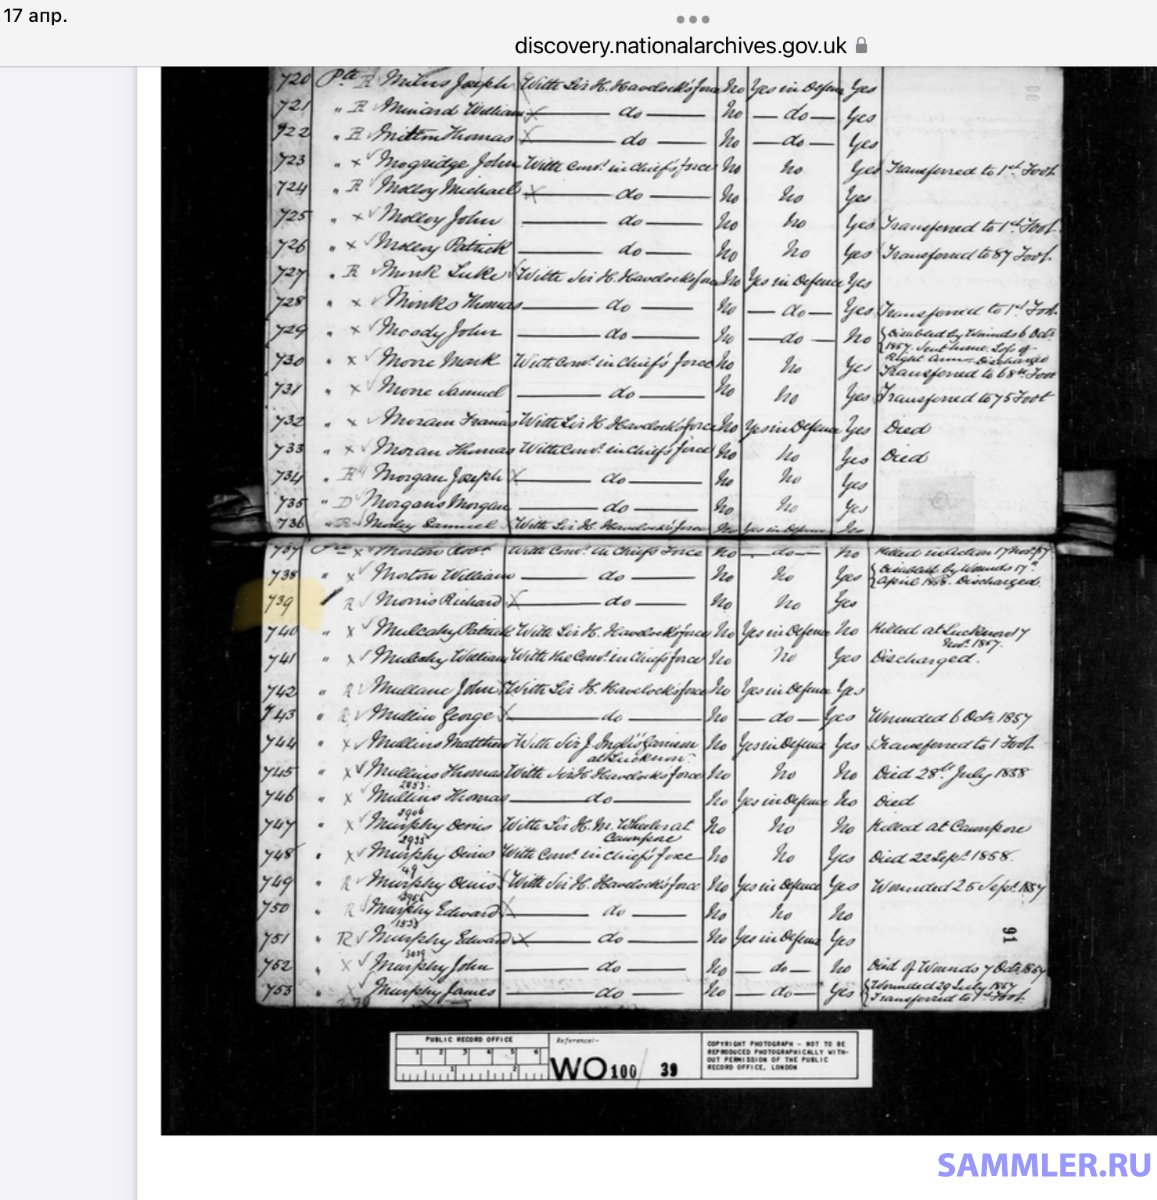 17 апр.
discovery.nationalarchives.gov.uk
720 Pte R Milius Joseph With Sir H. Havelock's force No Yes in Defence Yes
721 " R Minard William × do No do Yes
722 " R Mitton Thomas × do No do Yes
723 " × Mogridge John With Comr. in Chief's force No No Yes Transferred to 1st Foot.
724 " R Molloy Michael × do No No Yes
725 " × Molloy John do No No Yes Transferred to 1st Foot.
726 " × Molloy Patrick do No No Yes Transferred to 87 Foot.
727 " R Monk Luke With Sir H. Havelocks force No Yes in Defence Yes
728 " × Monks Thomas do No do Yes Transferred to 1st Foot.
729 " × Moody John do No do No Disabled by Wounds 6 Octr.
1857. Sent home. Loss of
Right Arm. Discharged
730 " × Moore Mark With Comr. in Chief's force No No Yes Transferred to 68th Foot
731 " × Moore Samuel do No No Yes Transferred to 75 Foot
732 " × Moran Francis With Sir H. Havelock's force No Yes in Defence Yes Died
733 " × Moran Thomas With Comr. in Chief's force No No Yes Died
734 " R Morgan Joseph × do No No Yes
735 " D Morgans Morgan do No No Yes
736 " R Morley Samuel With Sir H. Havelock's force No Yes in Defence No
737 Pte × Morton Robt With Comr. in Chiefs Force No do No Killed in Action 17 Novr. 57
738 " × Morton William do No No Yes Disabled by Wounds 17th
April 1858. Discharged.
739 R Morris Richard × do No No Yes
740 " × Mulcahy Patrick With Sir H. Havelocks force No Yes in Defence No Killed at Lucknow 17
Novr. 1857.
741 " × Mulcahy William With the Comr. in Chiefs force No No Yes Discharged.
742 " R Mullane John With Sir H. Havelocks force No Yes in Defence Yes
743 " R Mullin George do No do Yes Wounded 6 Octr. 1857
744 " × Mullins Matthew With Sir J. Inglis Garrison
at Lucknow. No Yes in Defence Yes Transferred to 1 Foot.
745 " × Mullins Thomas With Sir H. Havelocks force No No No Died 28th July 1858
746 " × Mullins Thomas do No Yes in Defence No Died
747 " × Murphy Denis With Sir H. M. Wheeler at
Cawnpore No No No Killed at Cawnpore
748 " × Murphy Denis With Comr. in Chief's force No No Yes Died 22 Sepr. 1858.
749 " R Murphy Denis With Sir H. Havelock's force No Yes in Defence Yes Wounded 25 Sepr. 1857
750 " R Murphy Edward × do No No No
751 " R Murphy Edward × do No Yes in Defence Yes
752 " × Murphy John do No do No Died of Wounds 7 Octr. 1857
753 " × Murphy James do No do Yes Wounded 29 July 1857
Transferred to 1st Foot.
91
PUBLIC RECORD OFFICE
1 2 3 4 5 6
1 2
Reference:-
WO 100 / 39
COPYRIGHT PHOTOGRAPH - NOT TO BE
REPRODUCED PHOTOGRAPHICALLY WITH-
OUT PERMISSION OF THE PUBLIC
RECORD OFFICE, LONDON
SAMMLER.RU